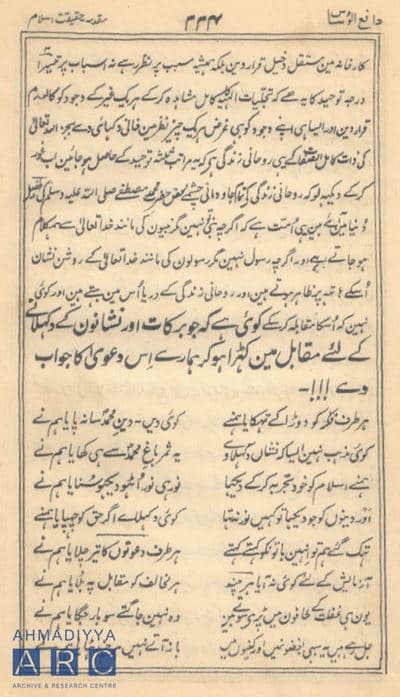 دافع الوساوس
۲۲۴
مقدمہ حقیقت اسلام
کارخانہ مین مستقل دخیل قرار دین بلکہ ہمیشہ مسبب پر نظر رہے نہ اسباب پر تیسرا
درجہ توحید کا یہ ہے کہ تجلیات الٰہیہ کا کامل مشاہدہ کر کے ہر یک غیر کے وجود کو کالعدم
قرار دین اور ایسا ہی اپنے وجود کو بھی غرض ہر یک چیز نظر مین فانی دکھائی دے بجز اللہ تعالیٰ
کی ذات کامل الصفات کے یہی روحانی زندگی ہے کہ یہ مراتب ثلثہ توحید کے حاصل ہو جائین اب غور
کر کے دیکھ لو کہ روحانی زندگی کے تمام جاودانی چشمے محض حضرت محمد مصطفےٰ صلی اللہ علیہ وسلم کی طفیل
دنیا مین آئے ہین یہی امت ہے کہ اگرچہ نبی تو نہین مگر نبیون کی مانند خدا تعالیٰ سے ہمکلام
ہو جاتی ہے اور اگرچہ رسول نہین مگر رسولون کی مانند خدا تعالیٰ کے روشن نشان
اُسکے ہاتھ پر ظاہر ہوتے ہین اور روحانی زندگی کے دریا اُس مین بہتے ہین اور کوئی
نہین کہ اُسکا مقابلہ کر سکے کوئی ہے کہ جو برکات اور نشانون کے دکھلانے
کے لئے مقابل مین کھڑا ہو کر ہمارے اِس دعویٰ کا جواب
دے !!!۔
ہر طرف فکر کو دوڑا کے تھکایا ہمنے کوئی دین۔ دین محمدؐ سا نہ پایا ہم نے
کوئی مذہب نہین ایسا کہ نشان دکھلاوے یہ ثمر باغ محمدؐ سے ہی کھایا ہم نے
ہمنے اسلام کو خود تجربہ کر کے دیکھا نور ہی نور اُٹھو دیکھو سنایا ہم نے
اور دینون کو جو دیکھا تو کہین نور نتھا کوئی دکھلاے اگر حق کو چھپایا ہمنے
تھک گئے ہم تو اِنہین باتونکو کہتے کہتے ہر طرف دعوتون کا تیر چلایا ہم نے
آزمایش کے لئے کوئی نہ آیا ہر چند ہر مخالف کو مقابل پہ بلایا ہم نے
یون ہی غفلت کے لحافون مین پڑے سوتے ہین وہ نہین جاگتے سو بار جگایا ہم نے
جل رہے ہین یہ سبھی بغضون مین اور کینون مین باز آتے نہین ہر چند ہٹایا ہم نے
AHMADIYYA
ARC
ARCHIVE & RESEARCH CENTRE